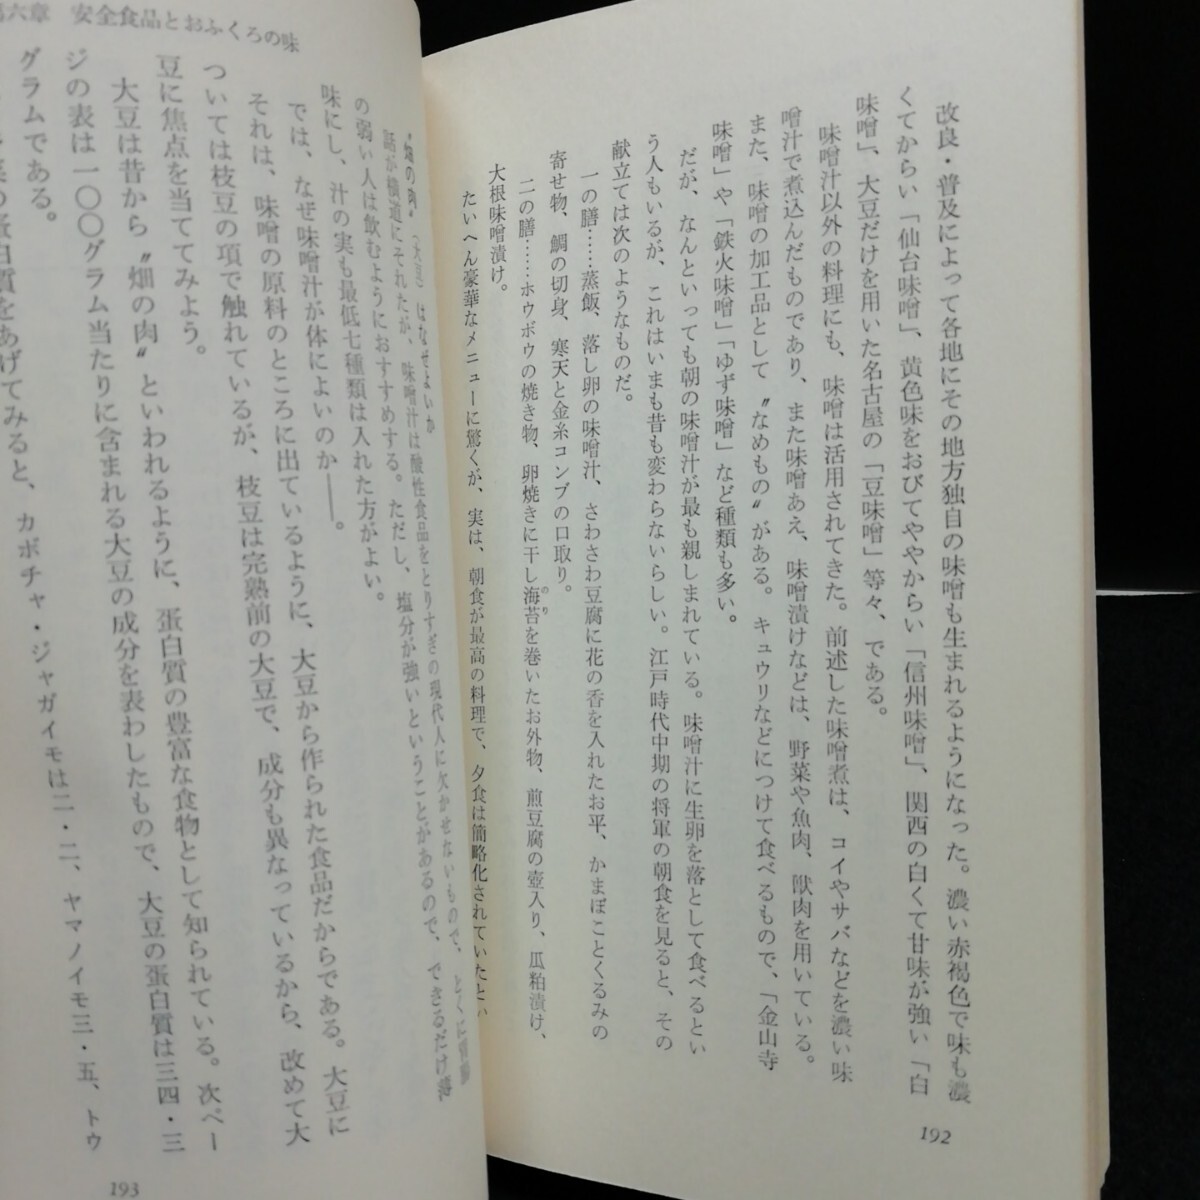 改良・普及によって各地にその地方独自の味噌も生まれるようになった。濃い赤褐色で味も濃
くてからい「仙台味噌」、黄色味をおびてややからい「信州味噌」、関西の白くて甘味が強い「白
味噌」、大豆だけを用いた名古屋の「豆味噌」等々、である。
味噌汁以外の料理にも、味噌は活用されてきた。前述した味噌煮は、コイやサバなどを濃い味
噌汁で煮込んだものであり、また味噌あえ、味噌漬けなどは、野菜や魚肉、獣肉を用いている。
また、味噌の加工品として〝なめもの〟がある。キュウリなどにつけて食べるもので、「金山寺
味噌」や「鉄火味噌」「ゆず味噌」など種類も多い。
だが、なんといっても朝の味噌汁が最も親しまれている。味噌汁に生卵を落として食べるとい
う人もいるが、これはいまも昔も変わらないらしい。江戸時代中期の将軍の朝食を見ると、その
献立ては次のようなものだ。
一の膳……蒸飯、落し卵の味噌汁、さわさわ豆腐に花の香を入れたお平、かまぼことくるみの
寄せ物、鯛の切身、寒天と金糸コンブの口取り。
二の膳……ホウボウの焼き物、卵焼きに干し海苔を巻いたお外物、煎豆腐の壺入り、瓜粕漬け、
のり
大根味噌漬け。
たいへん豪華なメニューに驚くが、実は、朝食が最高の料理で、夕食は簡略化されていたとい
192
六章 安全食品とおふくろの味
〝畑の肉〟（大豆）はなぜよいか
話が横道にそれたが、味噌汁は酸性食品をとりすぎの現代人に欠かせないもので、とくに胃腸
の弱い人は飲むようにおすすめする。ただし、塩分が強いということがあるので、できるだけ薄
味にし、汁の実も最低七種類は入れた方がよい。
では、なぜ味噌汁が体によいのか――。
それは、味噌の原料のところに出ているように、大豆から作られた食品だからである。大豆に
ついては枝豆の項で触れているが、枝豆は完熟前の大豆で、成分も異なっているから、改めて大
豆に焦点を当ててみよう。
大豆は昔から〝畑の肉〟といわれるように、蛋白質の豊富な食物として知られている。次ペー
ジの表は一〇〇グラム当たりに含まれる大豆の成分を表わしたもので、大豆の蛋白質は三四・三
グラムである。
菜の蛋白質をあげてみると、カボチャ・ジャガイモは二・二、ヤマノイモ三・五、トウ
193